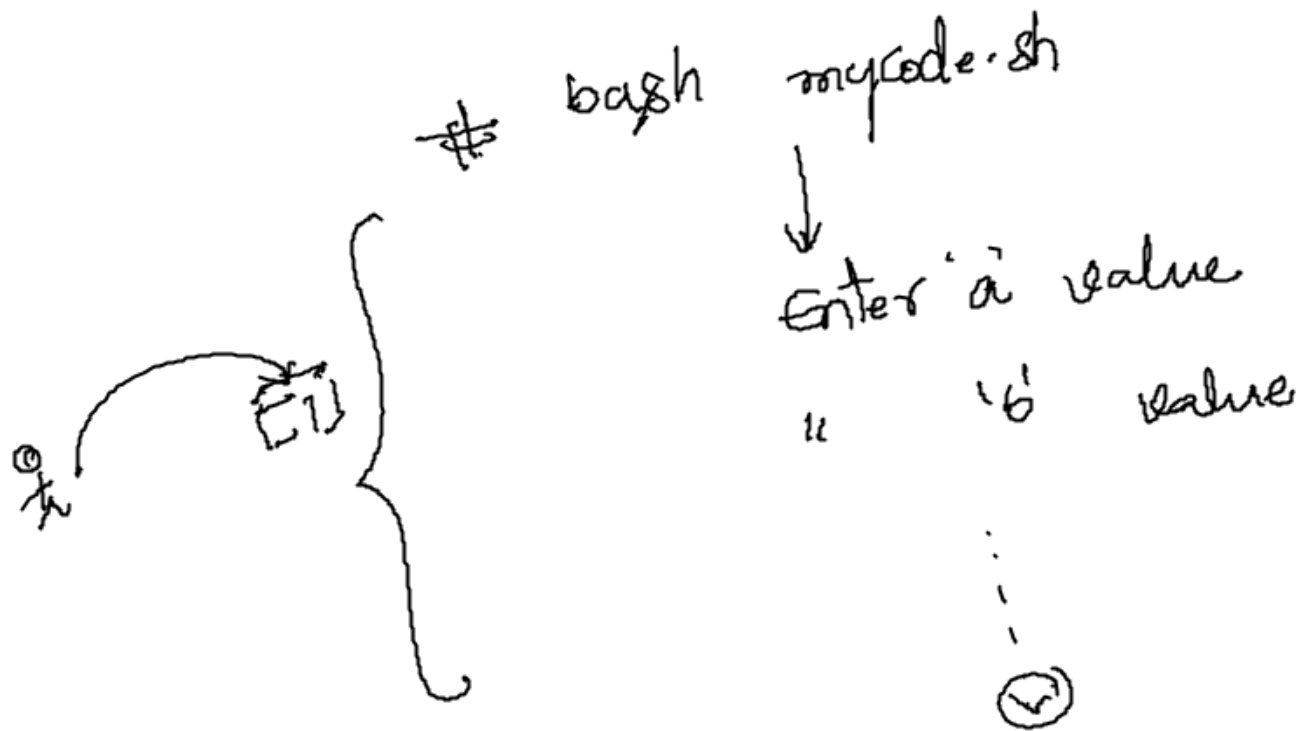 # bash mycode.sh
Enter 'a' value
" 'b' value